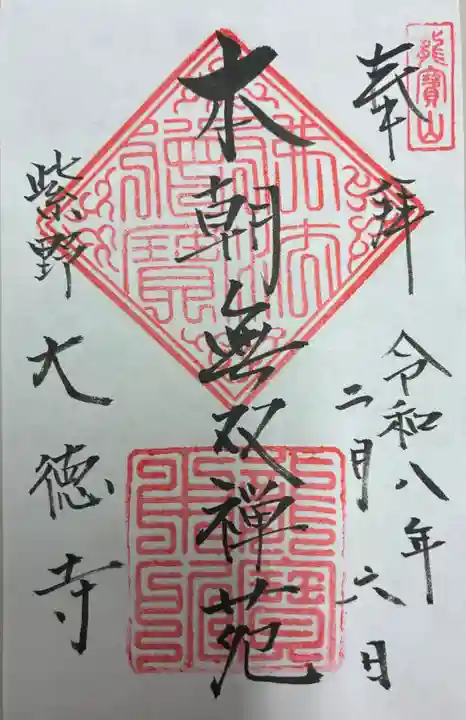 龍寶山
奉拝
令和八年
二月六日
本朝無双禅苑
紫野
大徳寺